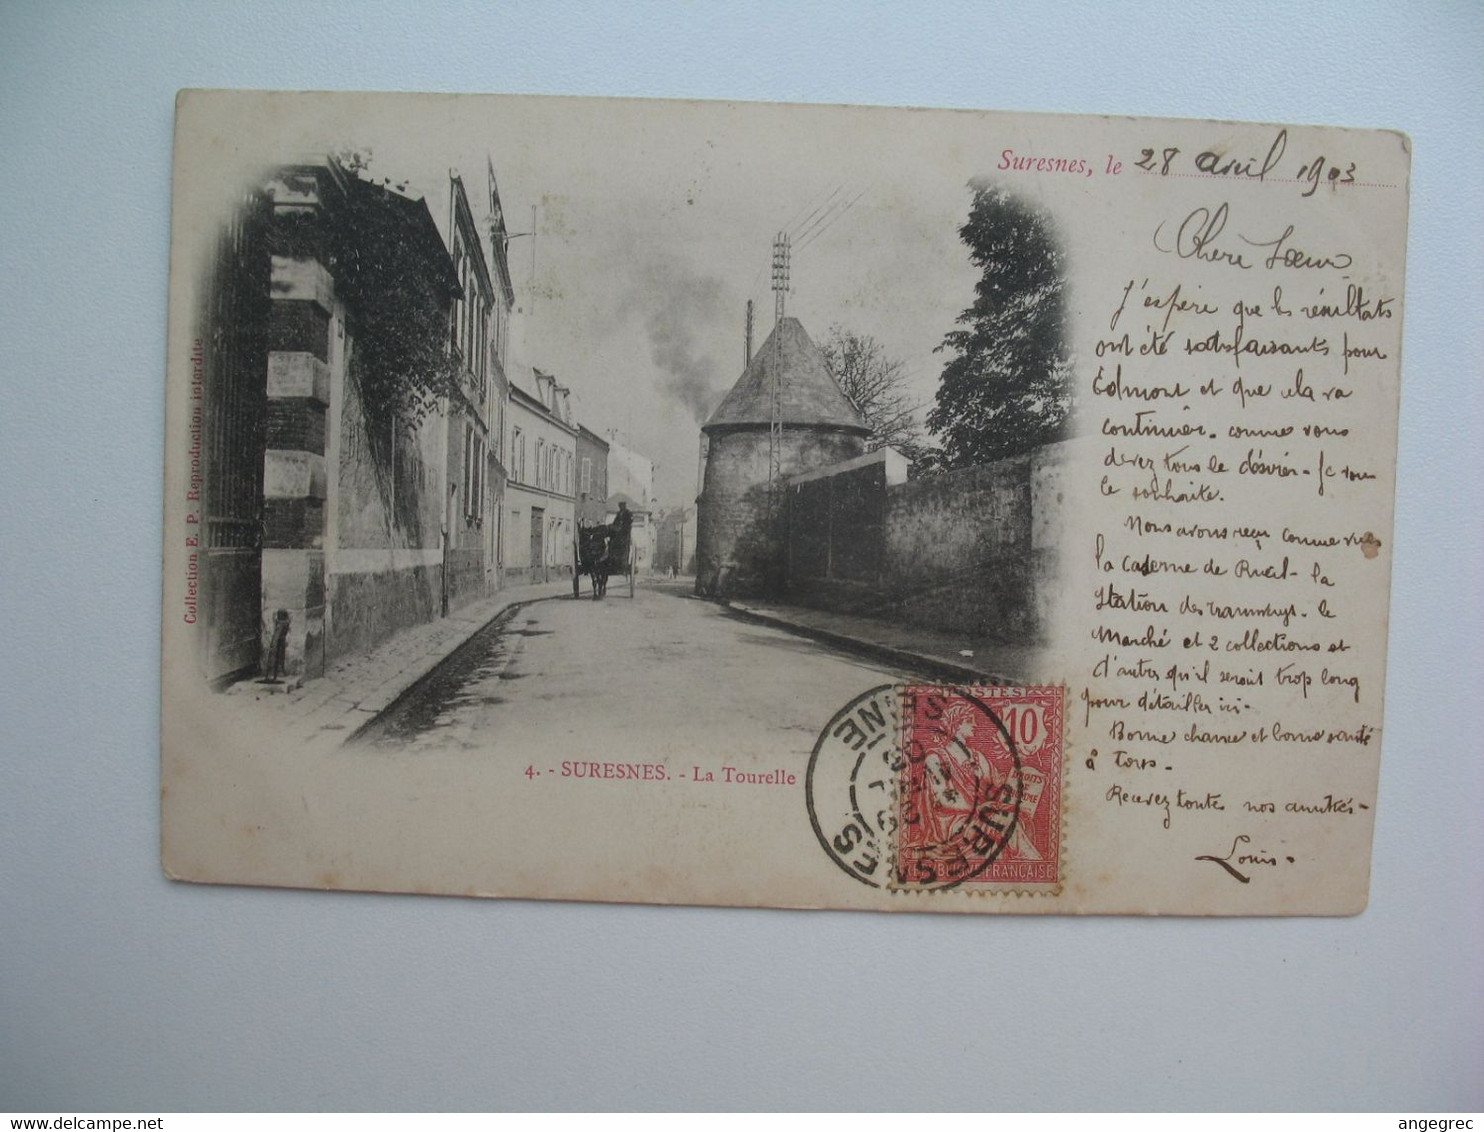 Suresnes, le 28 avril 1903
Chère Sœur
J'espère que les résultats
ont été satisfaisants pour
Edmont et que cela va
continuer. comme vous
devez tous le désirer. Je vous
le souhaite.
Nous avons reçu comme vues
la caserne de Rueil - la
station des tramways. le
Marché et 2 collections et
d'autres qu'il serait trop long
pour détailler ici.
Bonne chance et bonne santé
à tous.
Recevez toutes nos amitiés.
Louis.
Collection E. P. Reproduction interdite
4. - SURESNES. - La Tourelle
POSTES
10
DROITS DE L'HOMME
REPUBLIQUE FRANÇAISE
SURESNES
SEINE
delcampe.net
angegrec